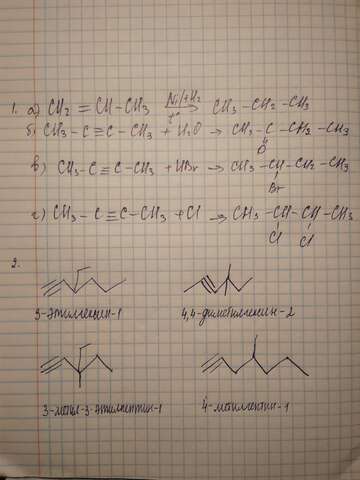 1. а) CH2 = CH - CH3 Ni/+H2 → t° CH3 - CH2 - CH3
б) CH3 - C ≡ C - CH3 + H2O → CH3 - C - CH2 - CH3
O
в) CH3 - C ≡ C - CH3 + HBr → CH3 - CH - CH2 - CH3
Br
г) CH3 - C ≡ C - CH3 + Cl → CH3 - CH - CH - CH3
Cl Cl
2.
3-этилгексин-1 4,4-диметилгексин-2
3-метил-3-этилпентин-1 4-метилгептин-1